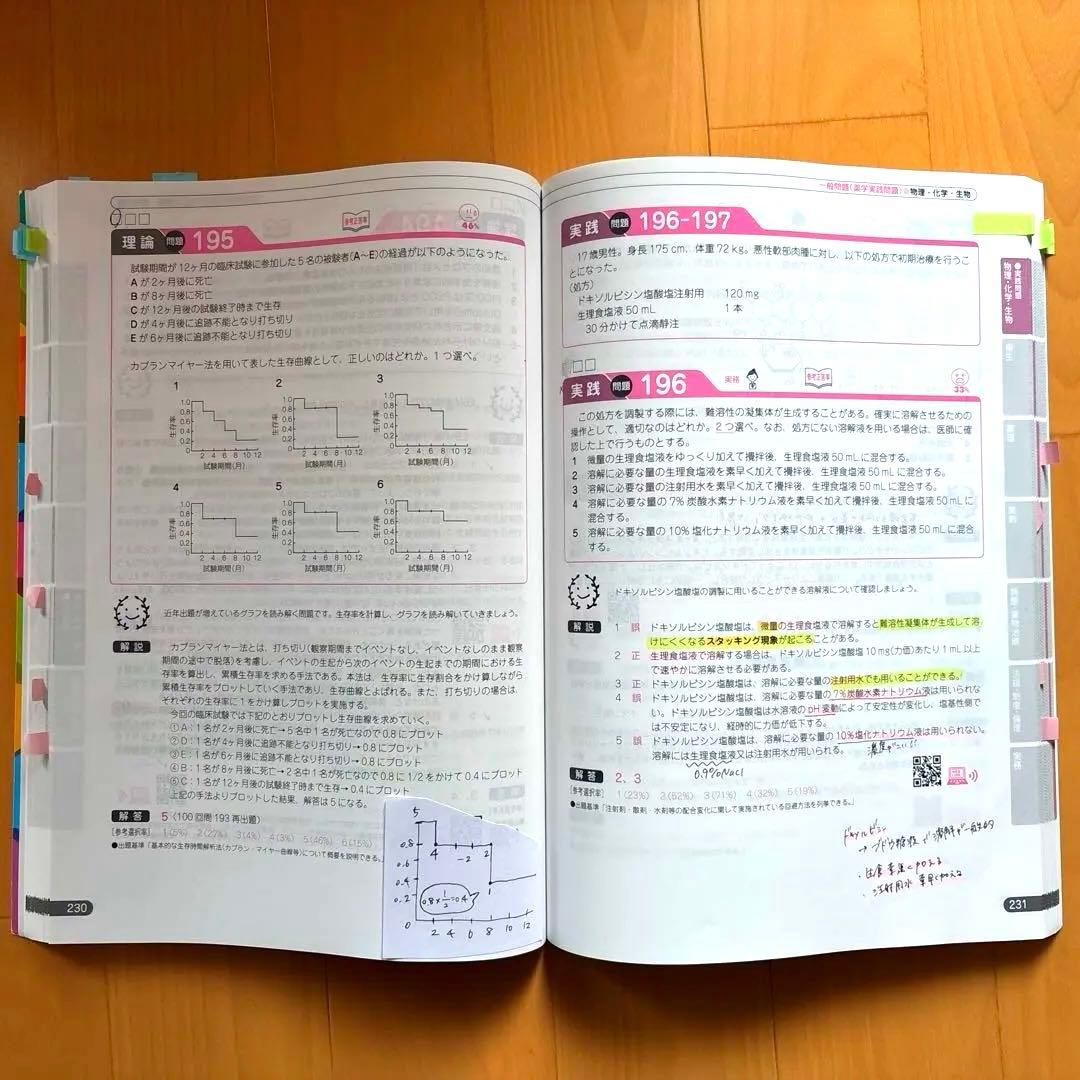 理論 問題 195
参考正答率
46%
試験期間が12ヶ月の臨床試験に参加した5名の被験者(A〜E)の経過が以下のようになった。
Aが2ヶ月後に死亡
Bが8ヶ月後に死亡
Cが12ヶ月後の試験終了時まで生存
Dが4ヶ月後に追跡不能となり打ち切り
Eが6ヶ月後に追跡不能となり打ち切り
カプランマイヤー法を用いて表した生存曲線として、正しいのはどれか。1つ選べ。
1 2 3
生存率 1.0 0.8 0.6 0.4 0.2 0
2 4 6 8 10 12
試験期間(月)
生存率 1.0 0.8 0.6 0.4 0.2 0
2 4 6 8 10 12
試験期間(月)
生存率 1.0 0.8 0.6 0.4 0.2 0
2 4 6 8 10 12
試験期間(月)
4 5 6
生存率 1.0 0.8 0.6 0.4 0.2 0
2 4 6 8 10 12
試験期間(月)
生存率 1.0 0.8 0.6 0.4 0.2 0
2 4 6 8 10 12
試験期間(月)
生存率 1.0 0.8 0.6 0.4 0.2 0
2 4 6 8 10 12
試験期間(月)
近年出題が増えているグラフを読み解く問題です。生存率を計算し、グラフを読み解いていきましょう。
解説 カプランマイヤー法とは、打ち切り(観察期間までイベントなし、イベントなしのまま観察
期間の途中で脱落)を考慮し、イベントの生起から次のイベントの生起までの期間における生存
率を算出し、累積生存率を求める手法である。本法は、生存率に生存割合をかけ算しながら
累積生存率をプロットしていく手法であり、生存曲線とよばれる。また、打ち切りの場合は、
それぞれの生存率に1をかけ算しプロットを実施する。
今回の臨床試験では下記のとおりプロットし生存曲線を求めていく。
①A:1名が2ヶ月後に死亡→5名中1名が死亡なので0.8にプロット
②D:1名が4ヶ月後に追跡不能となり打ち切り→0.8にプロット
③E:1名が6ヶ月後に追跡不能となり打ち切り→0.8にプロット
④B:1名が8ヶ月後に死亡→2名中1名が死亡なので0.8に1/2をかけて0.4にプロット
⑤C:1名が12ヶ月後の試験終了時まで生存→0.4にプロット
上記の手法よりプロットした結果、解答は5になる。
解答 5〈100回問193再出題〉
[参考選択率] 1(5%) 2(27%) 3(4%) 4(3%) 5(46%) 6(15%)
●出題基準「基本的な生存時間解析法(カプラン・マイヤー曲線等)について概要を説明できる。」
5
0.8
0.6
0.4
0.2
0
4 -2 2
1
0.8×1/2=0.4
2 4 6 8 10 12
230
一般問題(薬学実践問題) 物理・化学・生物
実践 問題 196-197
17歳男性。身長175cm、体重72kg。悪性軟部肉腫に対し、以下の処方で初期治療を行うこ
とになった。
(処方)
ドキソルビシン塩酸塩注射用 120mg
生理食塩液50mL 1本
30分かけて点滴静注
実践 問題 196
実務
参考正答率
33%
この処方を調製する際には、難溶性の凝集体が生成することがある。確実に溶解させるための
操作として、適切なのはどれか。2つ選べ。なお、処方にない溶解液を用いる場合は、医師に確
認した上で行うものとする。
1 微量の生理食塩液をゆっくり加えて攪拌後、生理食塩液50mLに混合する。
2 溶解に必要な量の生理食塩液を素早く加えて攪拌後、生理食塩液50mLに混合する。
3 溶解に必要な量の注射用水を素早く加えて攪拌後、生理食塩液50mLに混合する。
4 溶解に必要な量の7%炭酸水素ナトリウム液を素早く加えて攪拌後、生理食塩液50mLに
混合する。
5 溶解に必要な量の10%塩化ナトリウム液を素早く加えて攪拌後、生理食塩液50mLに混合
する。
ドキソルビシン塩酸塩の調製に用いることができる溶解液について確認しましょう。
解説 1 誤 ドキソルビシン塩酸塩は、微量の生理食塩液で溶解すると難溶性凝集体が生成して溶
けにくくなるスタッキング現象が起こることがある。
2 正 生理食塩液で溶解する場合は、ドキソルビシン塩酸塩10mg(力価)あたり1mL以上
で速やかに溶解させる必要がある。
3 正 ドキソルビシン塩酸塩は、溶解に必要な量の注射用水でも用いることができる。
4 誤 ドキソルビシン塩酸塩は、溶解に必要な量の7%炭酸水素ナトリウム液は用いられな
い。ドキソルビシン塩酸塩は水溶液のpH変動によって安定性が変化し、塩基性側で
は不安定になり、経時的に力価が低下する。
5 誤 ドキソルビシン塩酸塩は、溶解に必要な量の10%塩化ナトリウム液は用いられない。
溶解には生理食塩液又は注射用水が用いられる。
0.9%NaCl
解答 2、3
[参考選択率] 1(23%) 2(52%) 3(71%) 4(32%) 5(19%)
●出題基準「注射剤・散剤・水剤等の配合変化に関して実施されている回避方法を列挙できる。」
ドキソルビシン
→ブドウ糖液で溶解が一般的
・生食 素速く加える
・注射用水 素早く加える
231
●実践問題
物理・化学・生物
衛生
薬理
薬剤
病態・薬物治療
法規・制度・倫理
実務